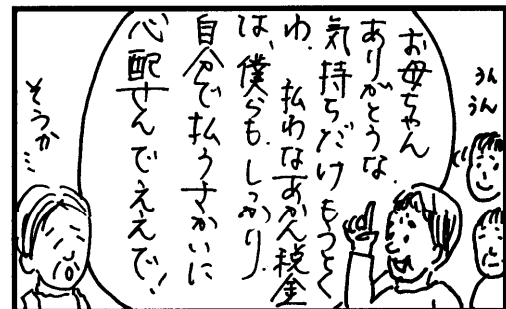 うん
うん
お母ちゃん
ありがとうな.
気持ちだけもろとく
わ. 払わなあかん税金
は、僕らもしっかり.
自分で払うさかいに
心配せんでええで!
そうか…